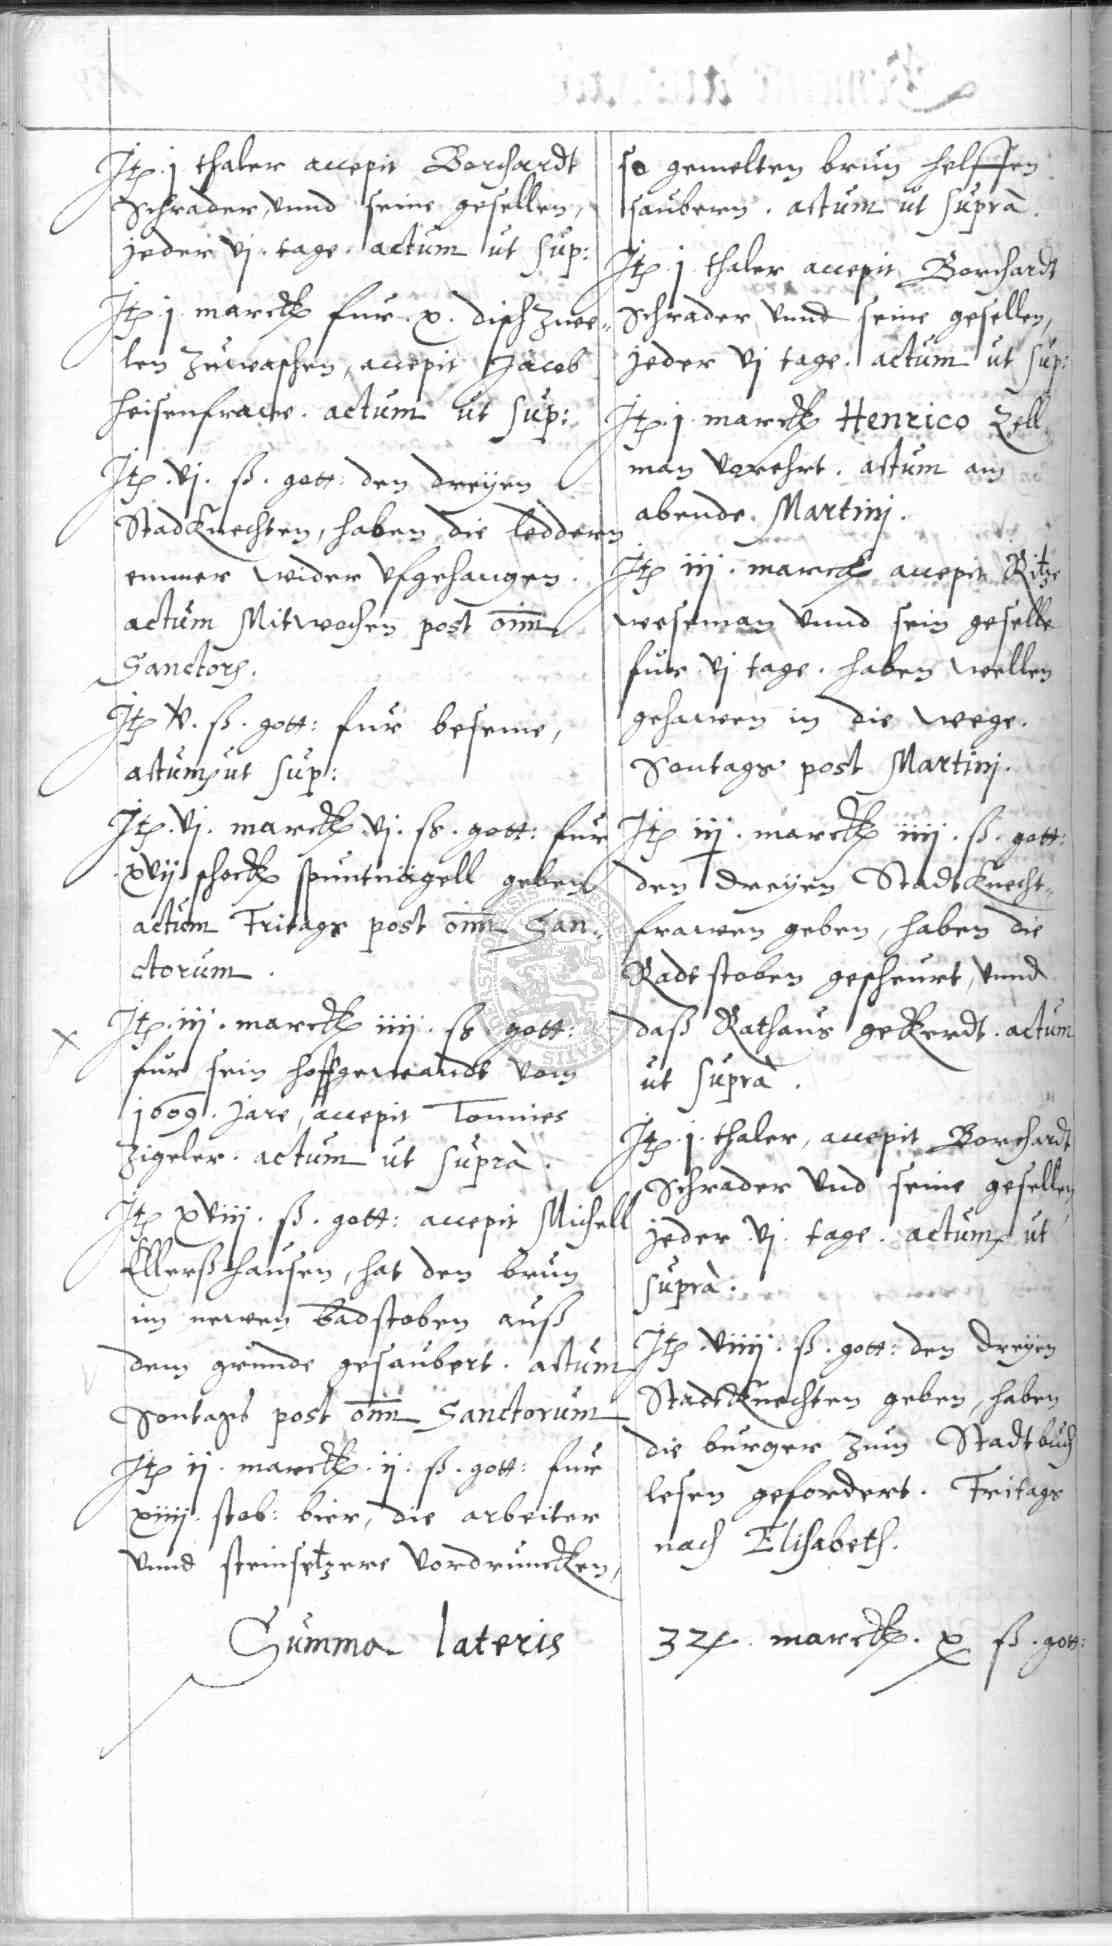 Itẽ. j thaler accepit Borchardt
Schrader, vnnd seine gesellen,
jeder vj. tage. actum ut sup:
Itẽ j marck fur. x. dischzwe-
len zuwaschen, accepit Jacob
Heisenfrawe. actum ut sup:
Itẽ. vj. ß. gott: den dreyen
Stadknechten, haben die leddern
emmer wider vfgehangen.
actum Mitwochen post oim̄
Sanctorū.
Itẽ v. ß. gott: fur beseme,
actum ut sup:
Itẽ. vj. marck vj. ß. gott: fur
xvij schock spuntnägell geben
actum Fritags post oim̄ San-
ctorum.
Itẽ. iij. marck iiij. ß. gott:
fur sein hoffgewandt vom
1609. Jare, accepit Tonnies
Zigeler. actum ut suprà.
Itẽ xviij. ß. gott: accepit Michell
Ellerßhausen, hat den brun
im newen badstoben auß
dem grunde gesaubert. actum
Sontags post oim̄ Sanctorum
Itẽ ij. marck. ij. ß. gott: fur
xiiij. stob: bier, die arbeiter
vnnd steinsetzere vordruncken,
so gemelten brun helffen
saubern. actum ut suprà.
Itẽ. j. thaler accepit Borchardt
Schrader vnnd seine gesellen,
jeder vj tage. actum ut sup:
Itẽ. j. marck Henrico Zell
man vorehrt. actum am
abende Martinj.
Itẽ iij. marck accepit Ritze
weseman vnnd sein geselle
fur vj tage. haben wellen
gehawen in die wege.
Sontags post Martinj.
Itẽ iij. marck iiij. ß. gott:
den dreyen Stadtknecht-
frawen geben, haben die
Radtstoben gescheurt, vnnd
daß Rathaus gekerdt. actum
ut suprà.
Itẽ. j. thaler, accepit Borchardt
Schrader vnd seine gesellen
jeder. vj. tage. actum ut
suprà.
Itẽ. viiij. ß. gott: den dreyen
Stadtknechten geben, haben
die burger zum Stadtbuch
lesen gefordert. Fritags
nach Elisabeth.
Summa lateris 324. marck. x ß. gott: